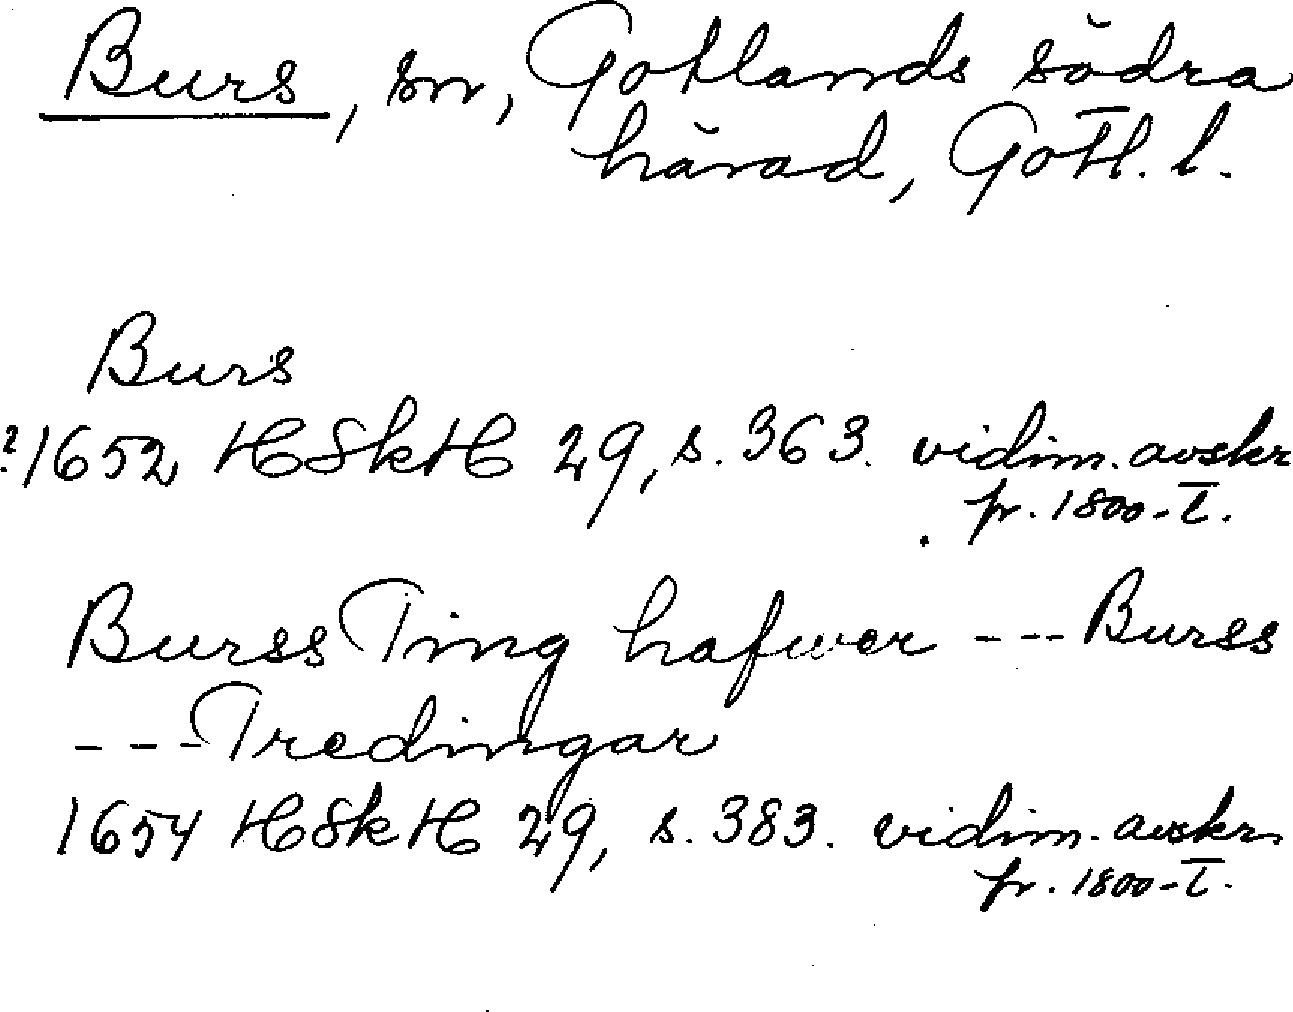 Burs, sn, Gotlands södra
härad, Gotl. l.
Burs
?1652 HSkH 29, s. 363. vidim. avskr
fr. 1800-t.
Burss Ting hafwer --- Burss
--- Tredingar
1654 HSkH 29, s. 383. vidim. avskr.
fr. 1800-t.